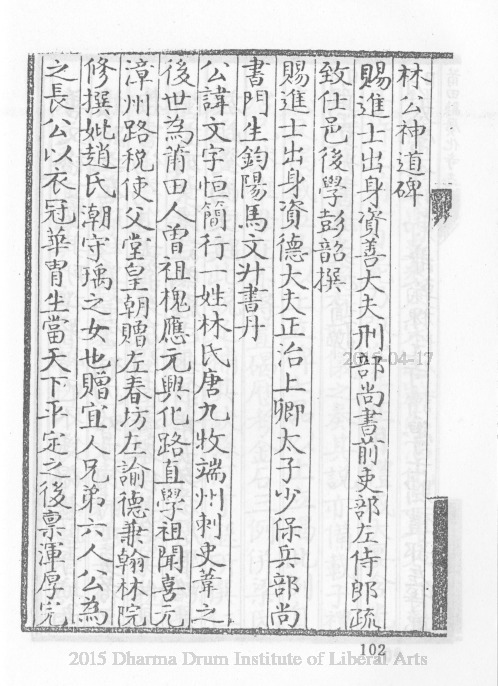 林公神道碑
賜進士出身資善大夫刑部尚書前吏部左侍郎疏
致仕邑後學彭韶撰
賜進士出身資德大夫正治上卿太子少保兵部尚
書門生鈞陽馬文升書丹
公諱文字恒簡行一姓林氏唐九牧端州刺史葦之
後世為莆田人曾祖槐應元興化路直學祖聞喜元
漳州路税使父堂皇朝贈左春坊左諭德兼翰林院
修撰妣趙氏潮守瑀之女也贈宜人兄弟六人公為
之長公以衣冠華胄生當天下平定之後禀渾厚完
102
2015 Dharma Drum Institute of Liberal Arts